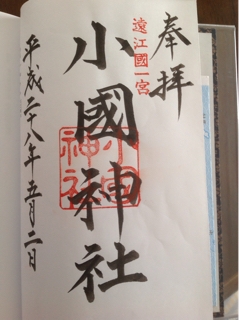 奉拝
遠江國一宮
小國神社
小國神社
平成二十八年五月二日